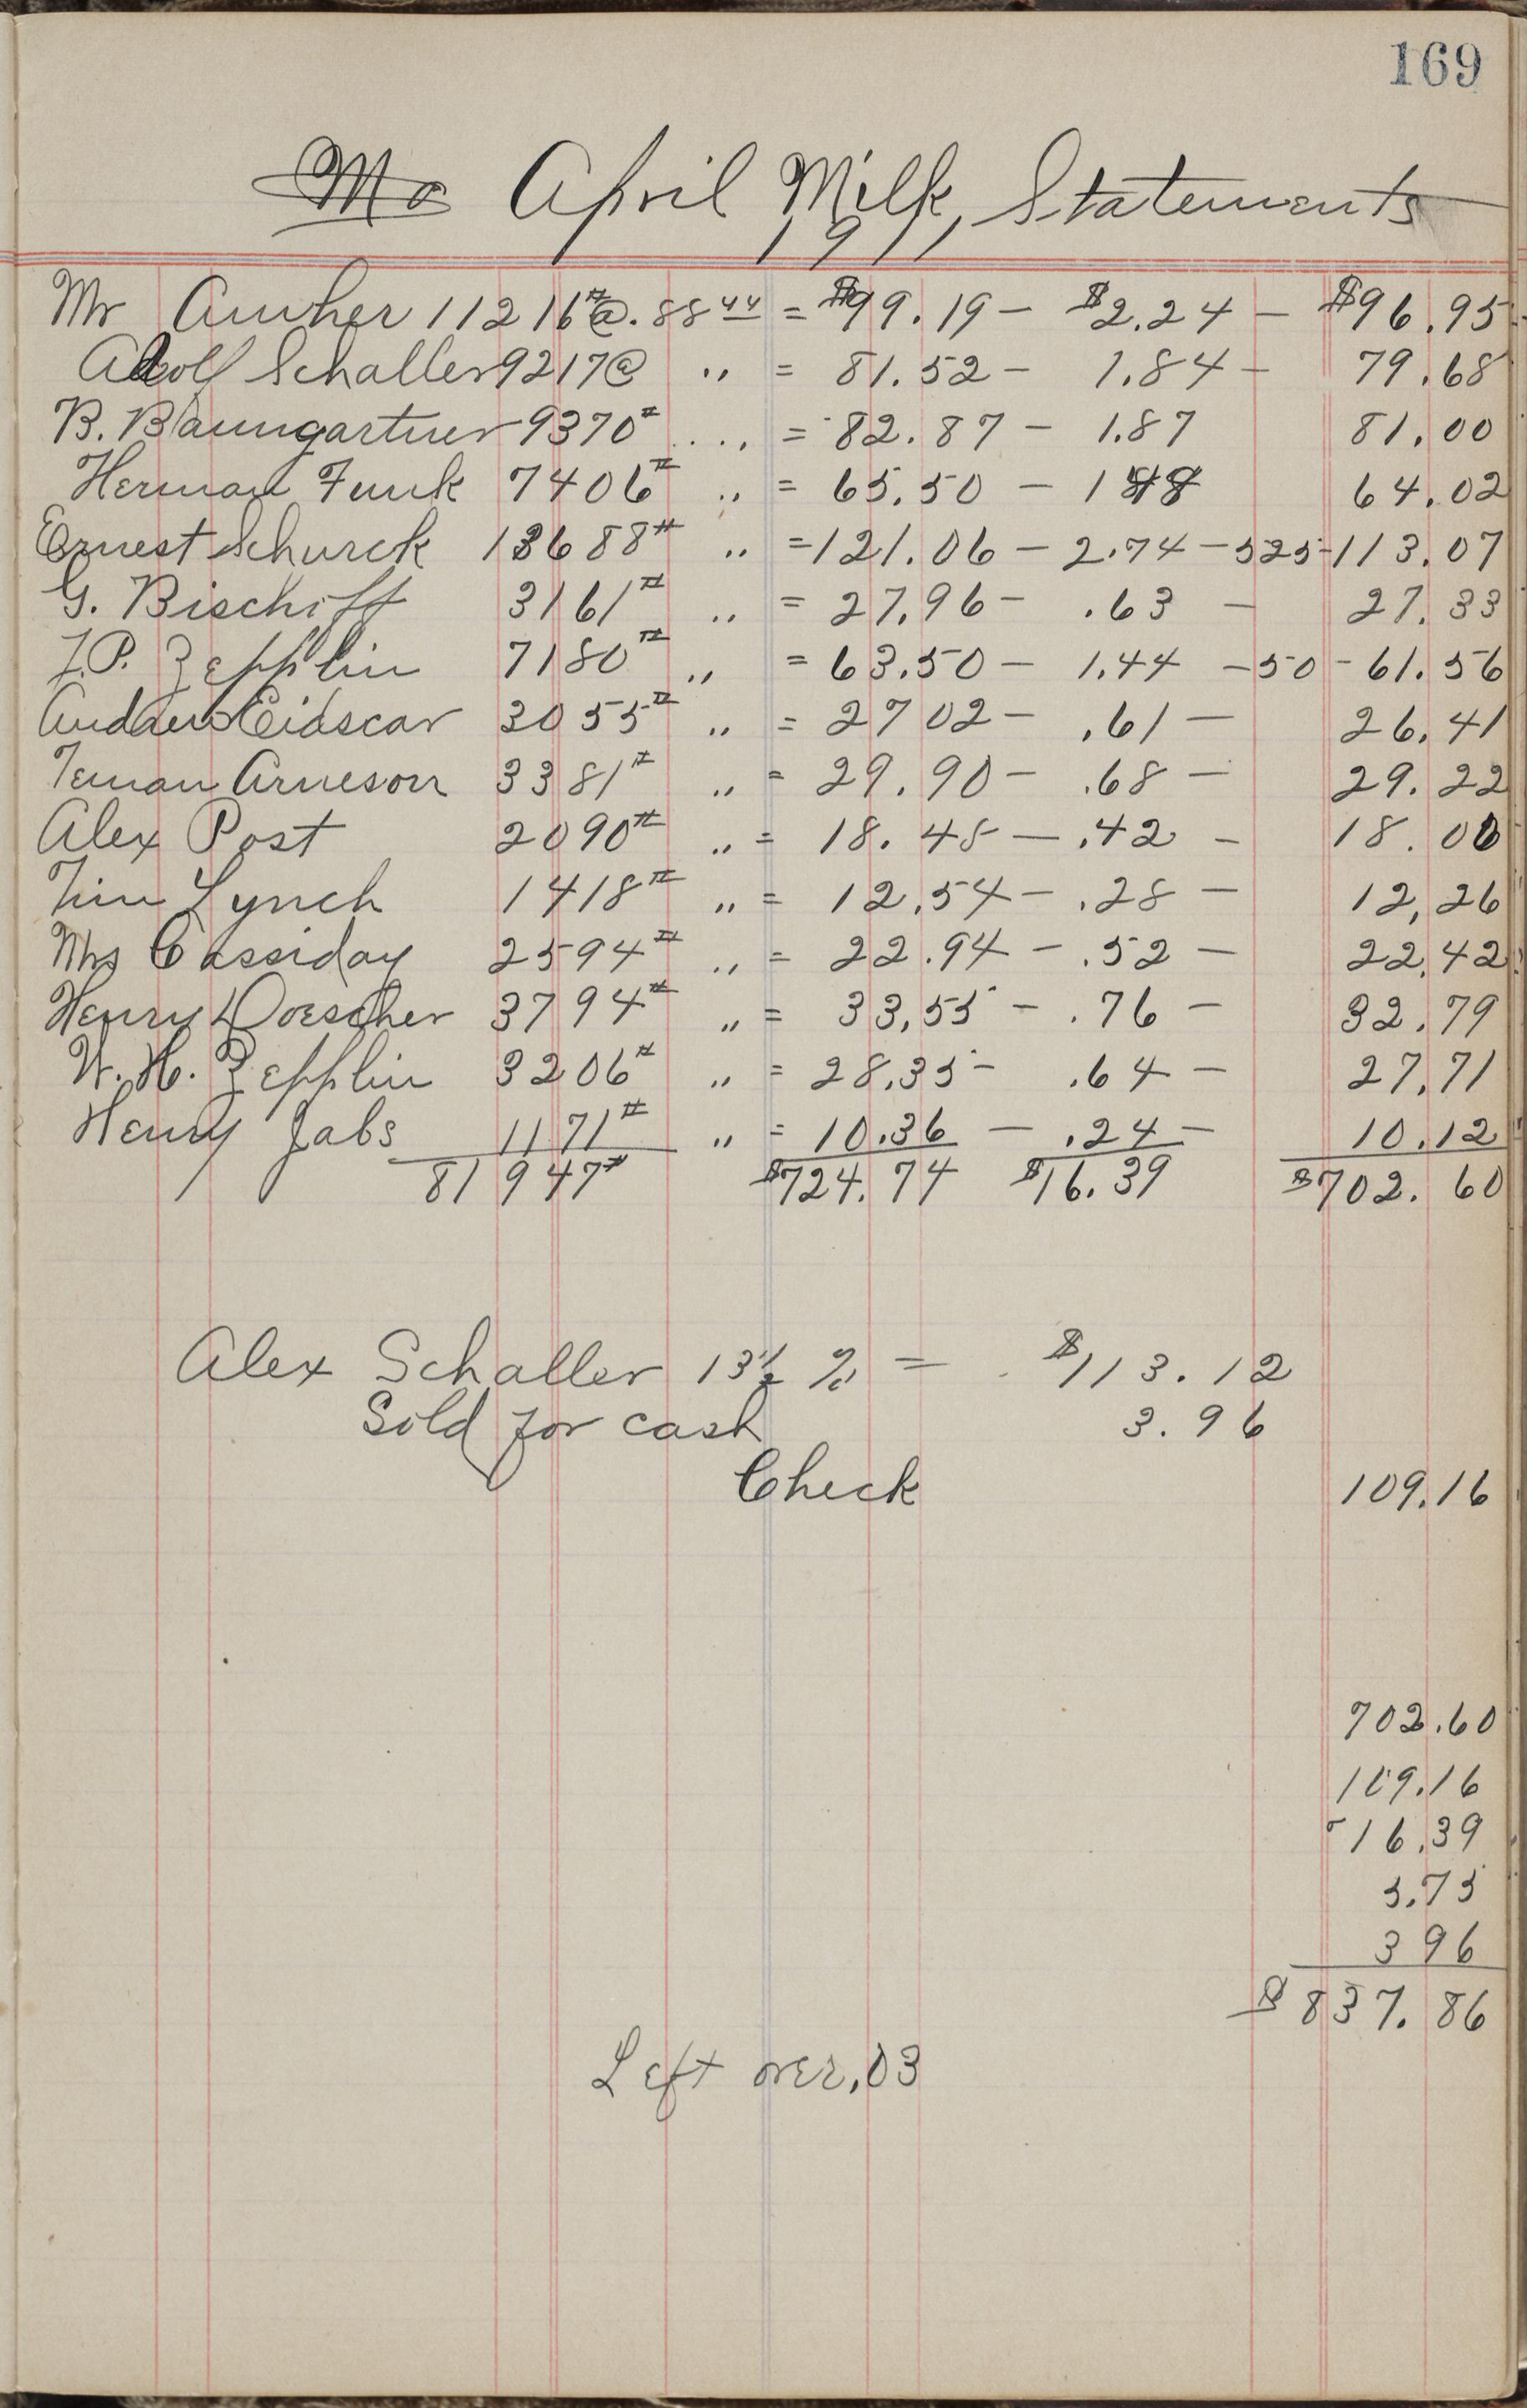 169
Mc April Milk, Statements
1911
Mr Amher 11216# @ .88 44 = $99.19 - $2.24 - $96.95
Adolf Schaller 9217 @ " = 81.52 - 1.84 - 79.68
B. Baumgartner 9370# " = 82.87 - 1.87 81.00
Herman Funk 7406# " = 65.50 - 1 48 64.02
Ernest Schurck 13688# " = 121.06 - 2.74 - 525 - 113.07
G. Bischoff 3161# " = 27.96 - .63 - 27.33
F.P. Zepplin 7180# " = 63.50 - 1.44 - 50 - 61.56
Eidscar 3055# " = 27 02 - .61 - 26.41
Teman Arneson 3381# " = 29.90 - .68 - 29.22
Alex Post 2090# " = 18.48 - .42 - 18.06
Tim Lynch 1418# " = 12.54 - .28 - 12,26
Mrs Cassiday 2594# " = 22.94 - .52 - 22.42
Henry Doescher 3794# " = 33,55 - .76 - 32.79
W. H. Zepplin 3206# " = 28.35 - .64 - 27.71
Henry Jabs 1171# " = 10.36 - .24 - 10.12
81947# $724.74 $16.39 $702.60
Alex Schaller 13½ % = $113.12
Sold for cash 3.96
Check 109.16
702.60
109.16
16.39
5.75
3 96
$837.86
Left over .03